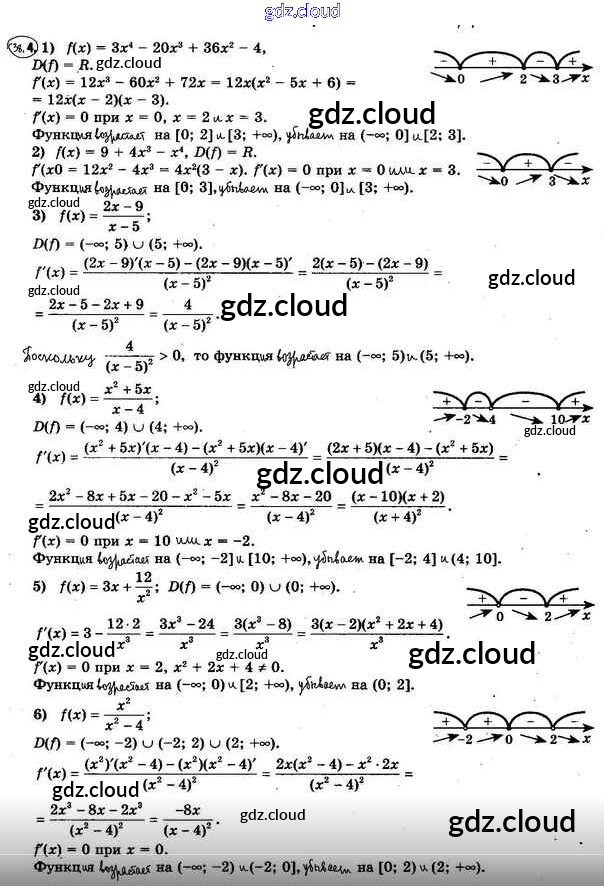 gdz.cloud
36.4. 1) f(x) = 3x⁴ − 20x³ + 36x² − 4,
D(f) = R.
gdz.cloud
f′(x) = 12x³ − 60x² + 72x = 12x(x² − 5x + 6) =
= 12x(x − 2)(x − 3).
− + − + 0 2 3 x
f′(x) = 0 при x = 0, x = 2 и x = 3.
gdz.cloud
Функция возрастает на [0; 2] и [3; +∞), убывает на (−∞; 0] и [2; 3].
2) f(x) = 9 + 4x³ − x⁴, D(f) = R.
f′(x0 = 12x² − 4x³ = 4x²(3 − x). f′(x) = 0 при x = 0 или x = 3.
− + − 0 3 x
Функция возрастает на [0; 3], убывает на (−∞; 0] и [3; +∞).
gdz.cloud
gdz.cloud
3) f(x) = (2x − 9)/(x − 5);
D(f) = (−∞; 5) ∪ (5; +∞).
f′(x) = ((2x − 9)′(x − 5) − (2x − 9)(x − 5)′)/(x − 5)² = (2(x − 5) − (2x − 9))/(x − 5)² =
gdz.cloud
gdz.cloud
= (2x − 5 − 2x + 9)/(x − 5)² = 4/(x − 5)².
gdz.cloud
Поскольку 4/(x − 5)² > 0, то функция возрастает на (−∞; 5) и (5; +∞).
gdz.cloud
4) f(x) = (x² + 5x)/(x − 4);
+ − − + −2 4 10 x
gdz.cloud
D(f) = (−∞; 4) ∪ (4; +∞).
f′(x) = ((x² + 5x)′(x − 4) − (x² + 5x)(x − 4)′)/(x − 4)² = ((2x + 5)(x − 4) − (x² + 5x))/(x − 4)² =
gdz.cloud
= (2x² − 8x + 5x − 20 − x² − 5x)/(x − 4)² = (x² − 8x − 20)/(x − 4)² = ((x − 10)(x + 2))/(x + 4)².
gdz.cloud
gdz.cloud
f′(x) = 0 при x = 10 или x = −2.
Функция возрастает на (−∞; −2] и [10; +∞), убывает на [−2; 4] и (4; 10].
5) f(x) = 3x + 12/x²; D(f) = (−∞; 0) ∪ (0; +∞).
+ − + 0 2 x
f′(x) = 3 − (12 · 2)/x³ = (3x³ − 24)/x³ = (3(x³ − 8))/x³ = (3(x − 2)(x² + 2x + 4))/x³.
gdz.cloud
gdz.cloud
gdz.cloud
f′(x) = 0 при x = 2, x² + 2x + 4 ≠ 0.
Функция возрастает на (−∞; 0) и [2; +∞), убывает на (0; 2].
6) f(x) = x²/(x² − 4);
+ + − − −2 0 2 x
D(f) = (−∞; −2) ∪ (−2; 2) ∪ (2; +∞).
f′(x) = ((x²)′(x² − 4) − (x²)(x² − 4)′)/(x² − 4)² = (2x(x² − 4) − x² · 2x)/(x² − 4)² =
gdz.cloud
= (2x³ − 8x − 2x³)/(x² − 4)² = −8x/(x − 4)².
gdz.cloud
gdz.cloud
f′(x) = 0 при x = 0.
Функция возрастает на (−∞; −2) и (−2; 0], убывает на [0; 2) и (2; +∞).